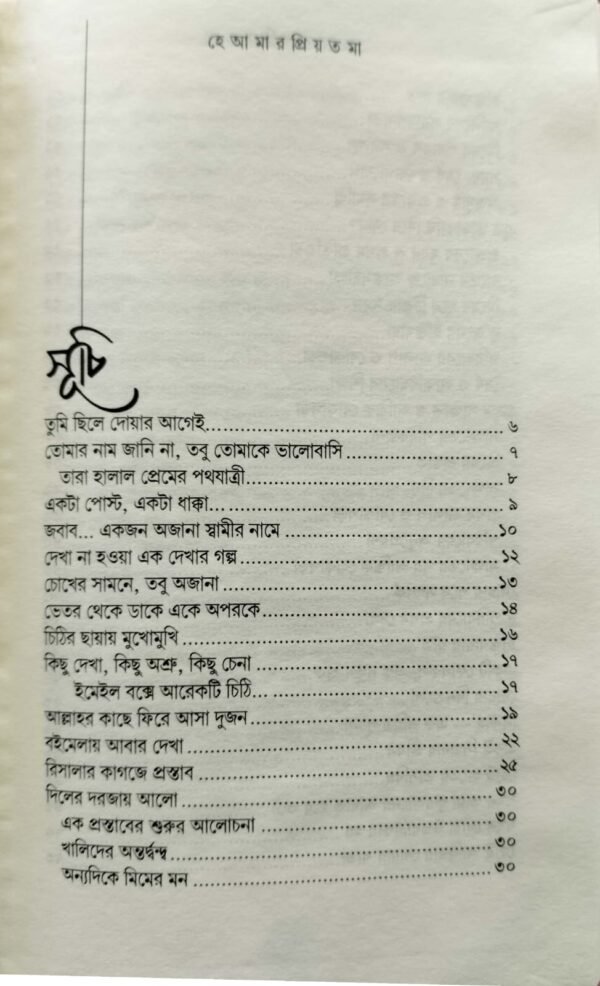 হে আ মা র প্রি য় ত মা
সূচি
তুমি ছিলে দোয়ার আগেই............................................................ ৬
তোমার নাম জানি না, তবু তোমাকে ভালোবাসি ............................ ৭
তারা হালাল প্রেমের পথযাত্রী............................................. ৮
একটা পোস্ট, একটা ধাক্কা... ..................................................... ৯
জবাব... একজন অজানা স্বামীর নামে ........................................১০
দেখা না হওয়া এক দেখার গল্প................................................১২
চোখের সামনে, তবু অজানা ....................................................১৩
ভেতর থেকে ডাকে একে অপরকে............................................১৪
চিঠির ছায়ায় মুখোমুখি ..........................................................১৬
কিছু দেখা, কিছু অশ্রু, কিছু চেনা .............................................১৭
ইমেইল বক্সে আরেকটি চিঠি... ..........................................১৭
আল্লাহর কাছে ফিরে আসা দুজন..............................................১৯
বইমেলায় আবার দেখা ..........................................................২২
রিসালার কাগজে প্রস্তাব ........................................................২৫
দিলের দরজায় আলো ...........................................................৩০
এক প্রস্তাবের শুরুর আলোচনা ...........................................৩০
খালিদের অন্তর্দ্বন্দ্ব..........................................................৩০
অন্যদিকে মিমের মন ......................................................৩০